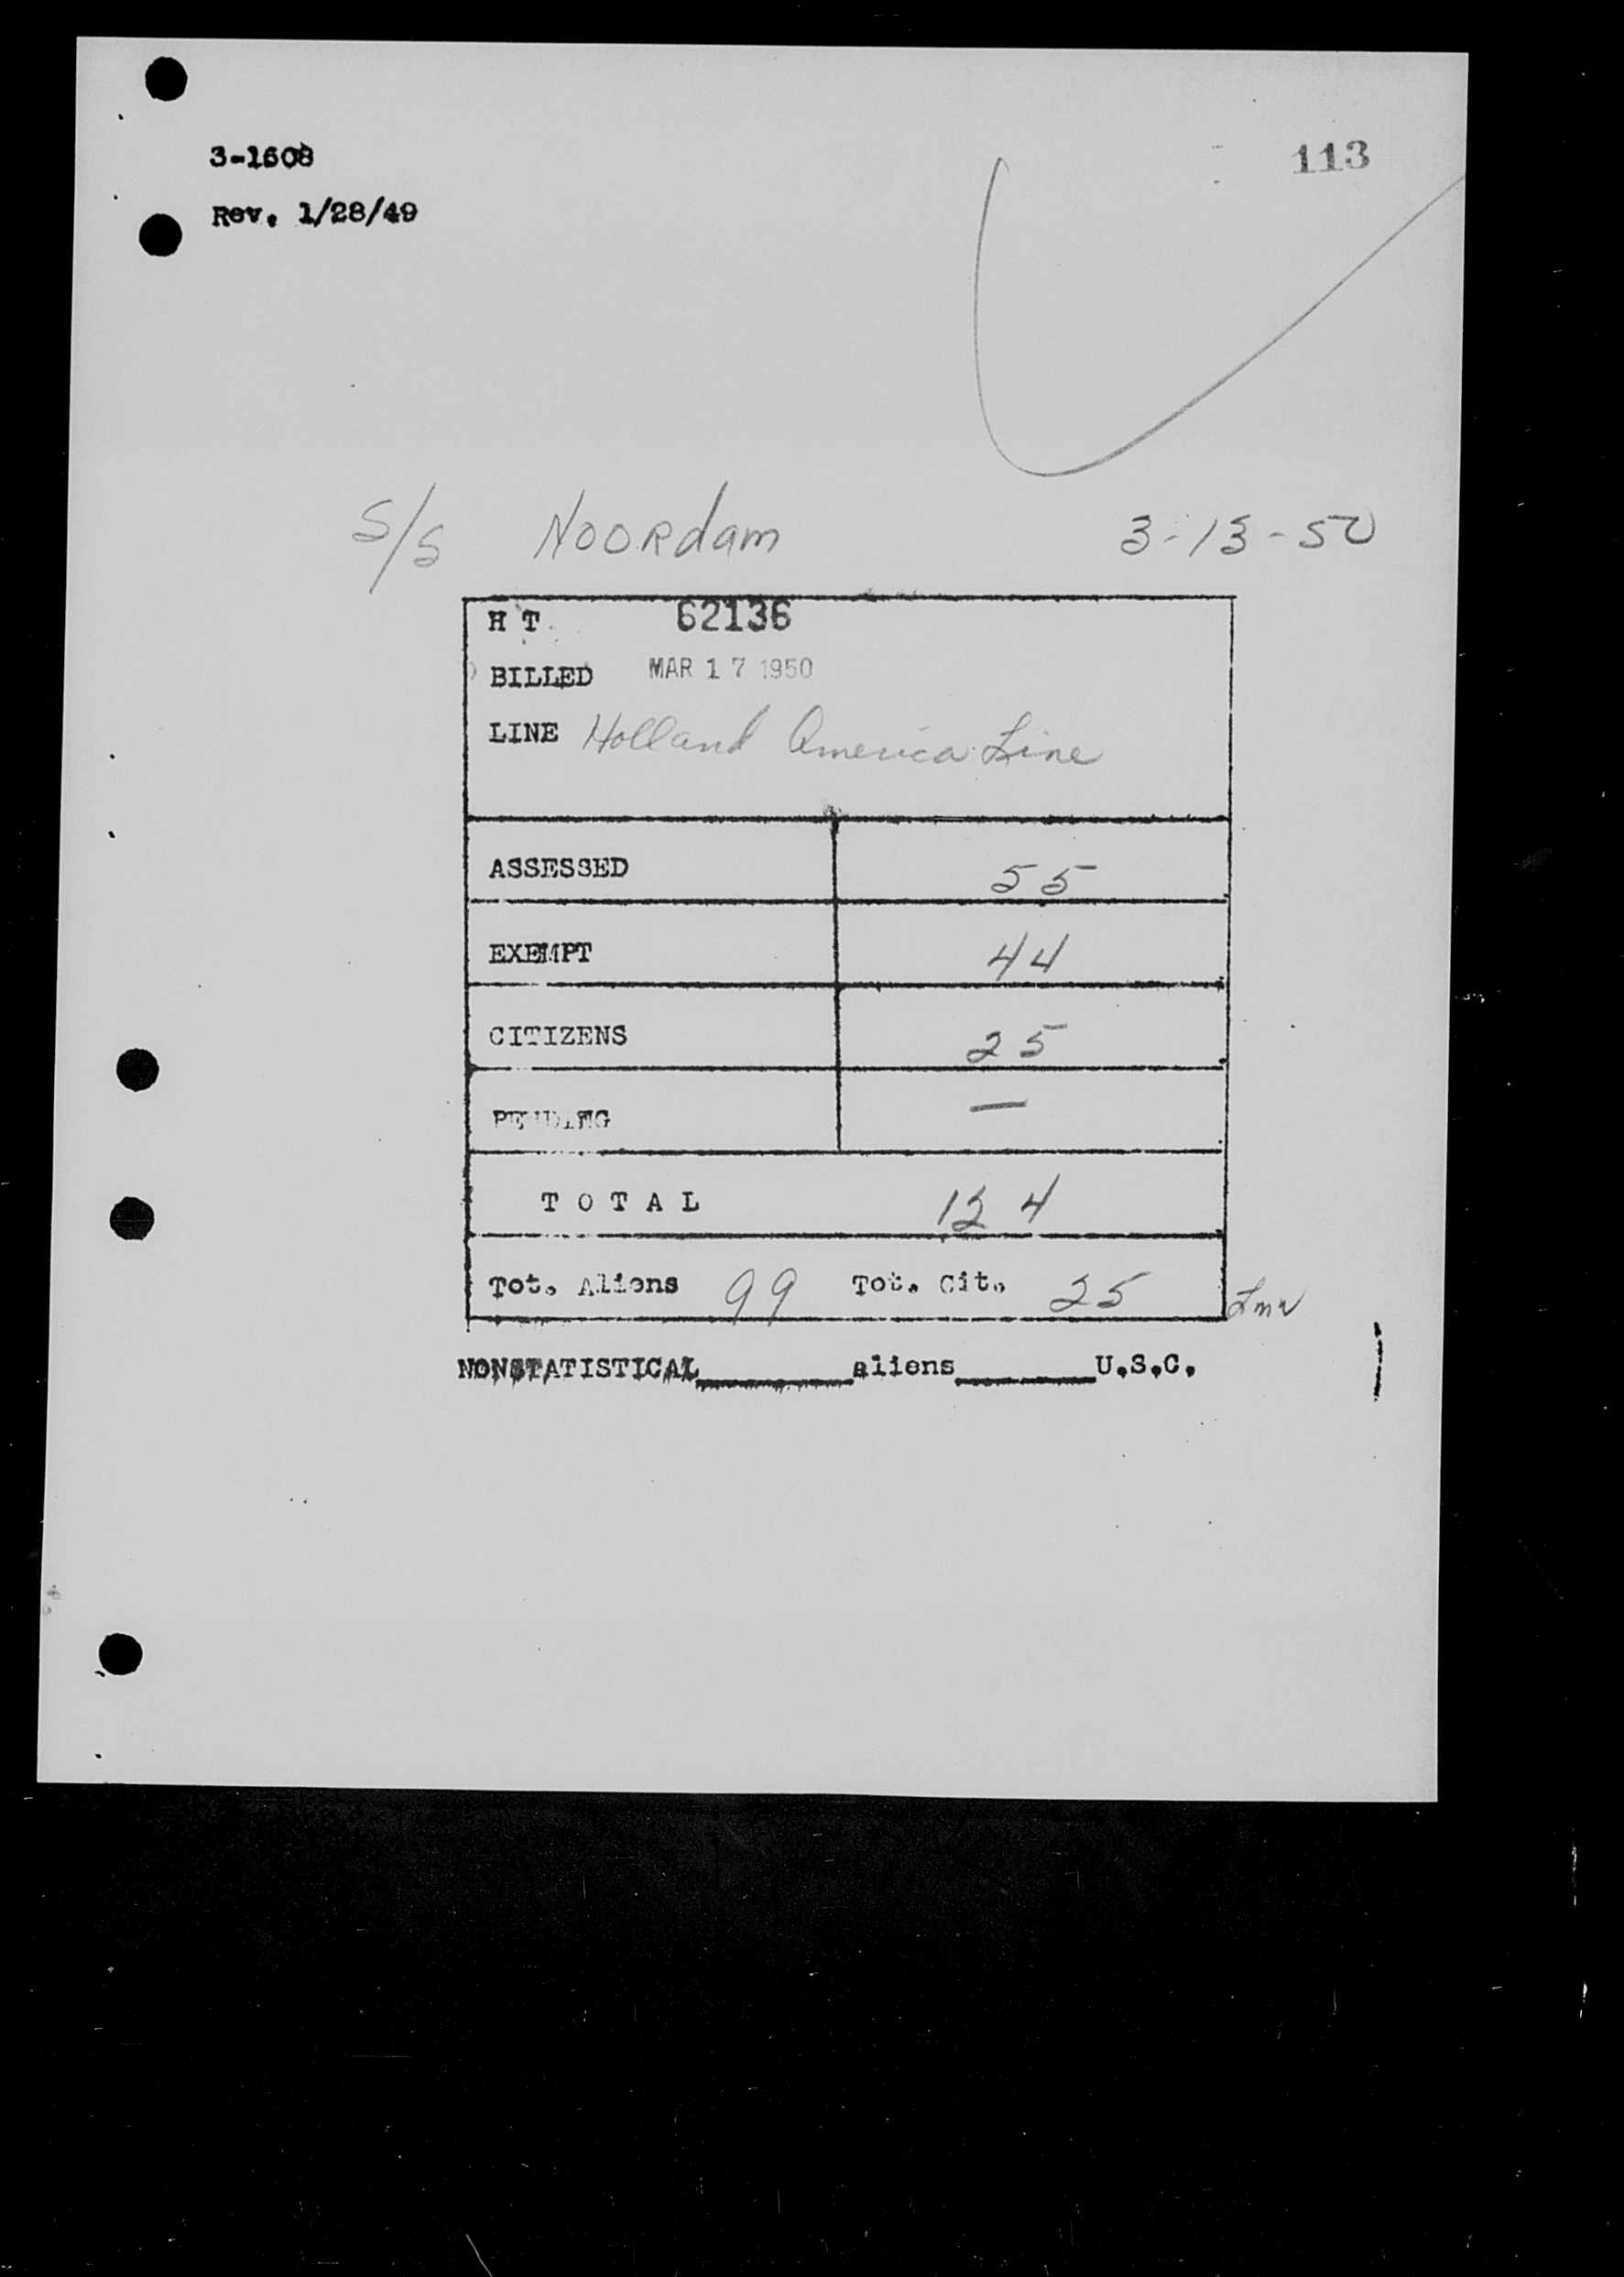 113
3-1608
Rev. 1/28/49
S/S Noordam 3-13-50
H T 62136
BILLED MAR 17 1950
LINE Holland America Line
ASSESSED 55
EXEMPT 44
CITIZENS 25
PENDING —
TOTAL 124
Tot. Aliens 99 Tot. Cit. 25
NONSTATISTICAL________aliens________U.S.C.